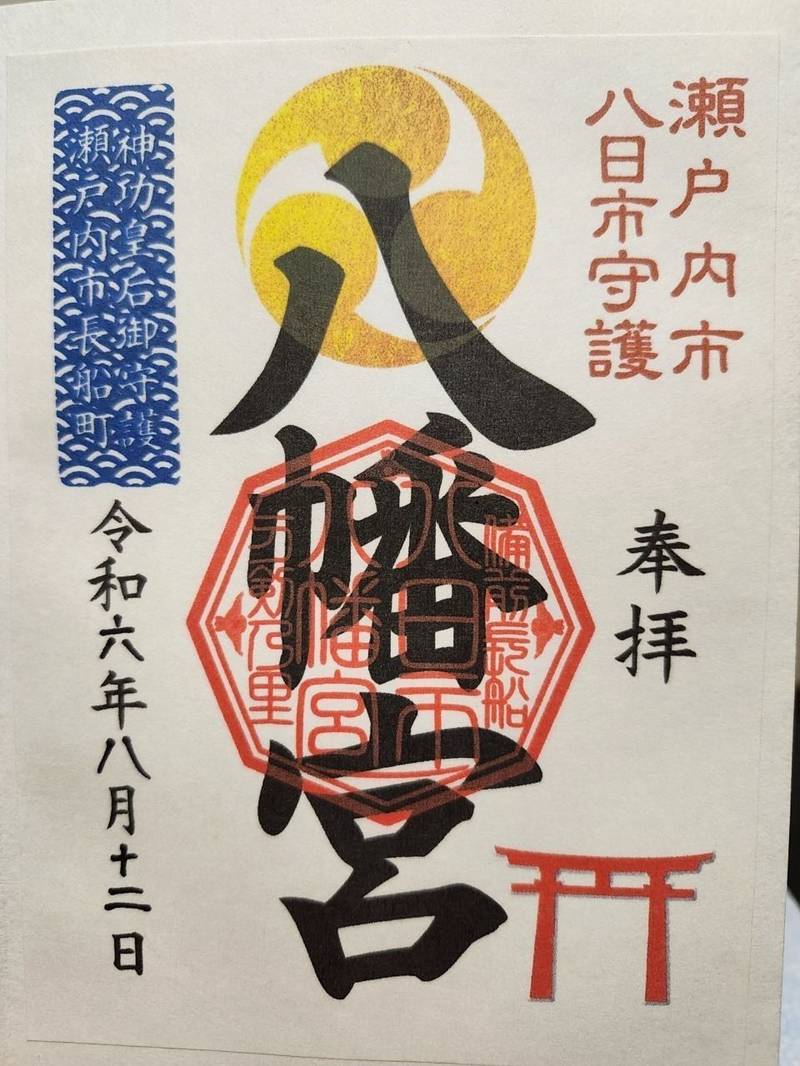 瀬戸内市
八日市守護
奉拝
八幡宮
備前長船
八日市
八幡宮
刀剣乃里
神功皇后御守護
瀬戸内市長船町
令和六年八月十二日